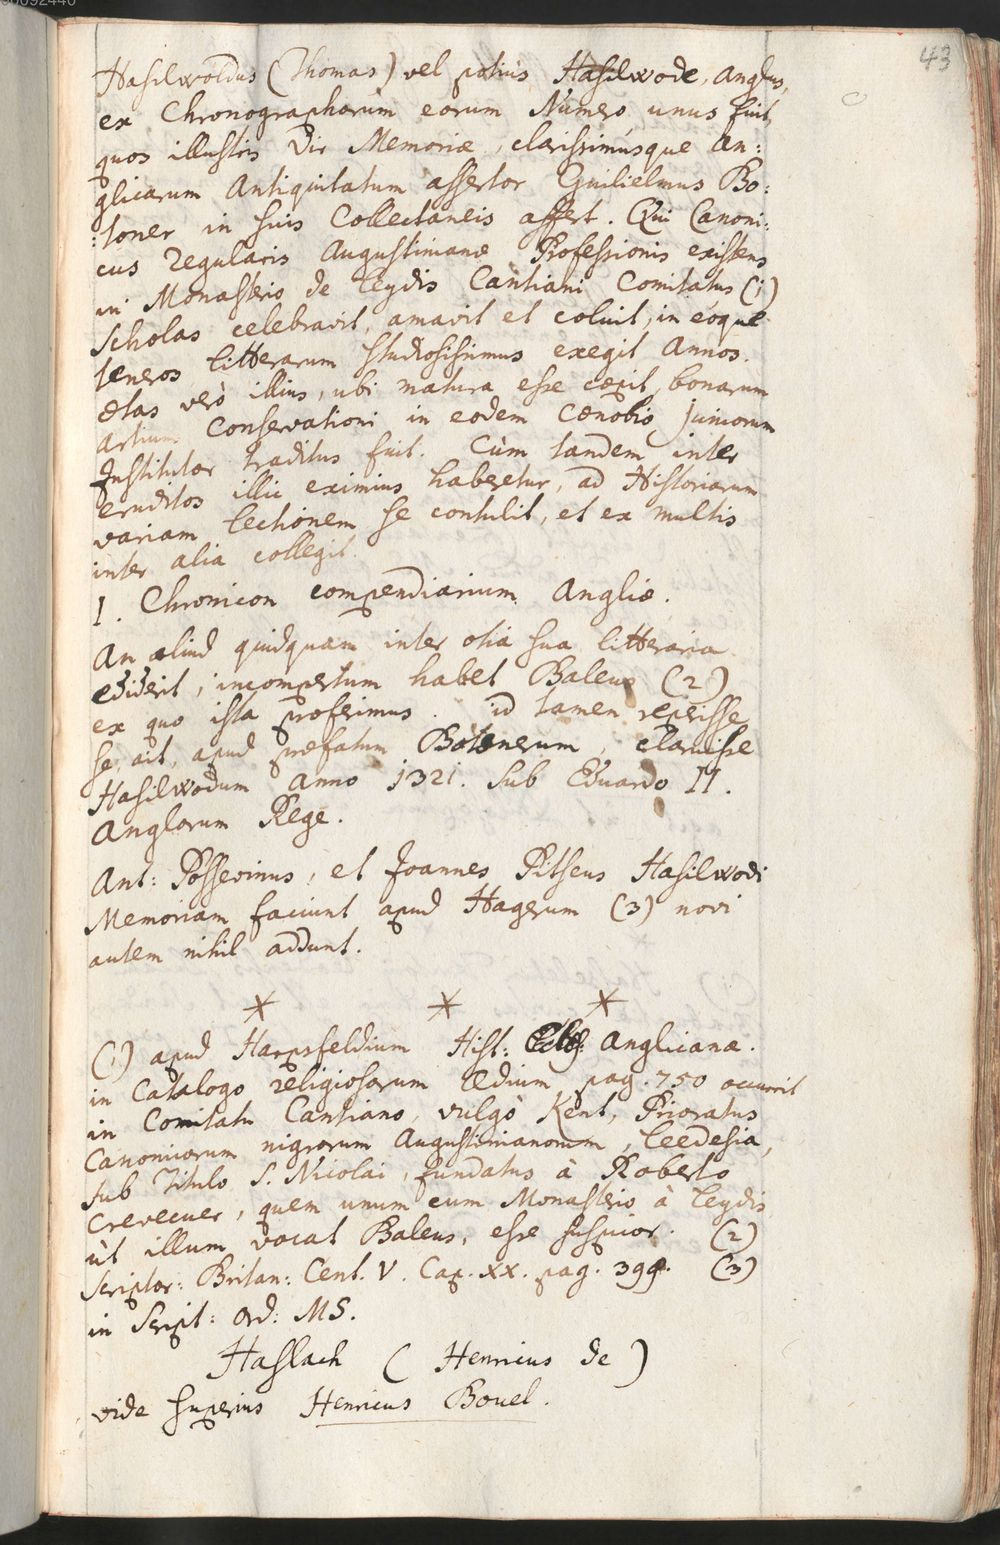 43
Hasilwoldus (Thomas) vel potius Hasilwode, Anglus,
ex Chronographorum eorum Numero unus fuit,
quos illustris Vir Memoriæ, clarissimusque An:
glicarum Antiquitatum assertor Guilielmus Bo:
:toner in suis Collectaneis affert. Qui Canoni:
cus regularis Augustinianæ Professionis existens
in Monasterio de Leydis Cantiani Comitatus (1)
Scholas celebravit, amavit et coluit, in eoque
teneros litterarum studiosissimus exegit Annos.
ætas verò illius, ubi matura esse cœpit, bonarum
Artium Conservationi in eodem Cœnobio Juniorum
Institutor traditus fuit. Cùm tandem inter
eruditos illic eximius haberetur, ad Historiarum
variam lectionem se contulit, et ex multis
inter alia collegit.
I. Chronicon compendiarium Angliæ.
An aliud quidquam inter otia sua litteraria
ediderit, incompertum habet Baleus (2)
ex quo ista proferimus. id tamen reperisse
se, ait, apud præfatum Botonerum, claruisse
Hasilwodum Anno 1321. Sub Eduardo II.
Anglorum Rege.
Ant: Possevinus, et Joannes Pitseus Hasilwodi
Memoriam faciunt apud Hagerum (3) novi
autem nihil addunt.
* * *
(1) apud Harpsfeldium Hist: Anglicanæ.
in Catalogo religiosorum Ædium pag. 750 occurrit
in Comitatu Cantiano, vulgò Kent, Prioratus
Canonicorum nigrorum Augustinianorum, Leedesia,
sub Titulo S. Nicolai, fundatus à Roberto
Crevecuer, quem unum cum Monasterio à Leydis
ùt illum vocat Baleus, esse suspicor. (2)
Scriptor: Britan: Cent. V. Cap. XX. pag. 399. (3)
in Script: Ord: MS.
Haslach ( Henricus de )
vide superius Henricus Bouel.